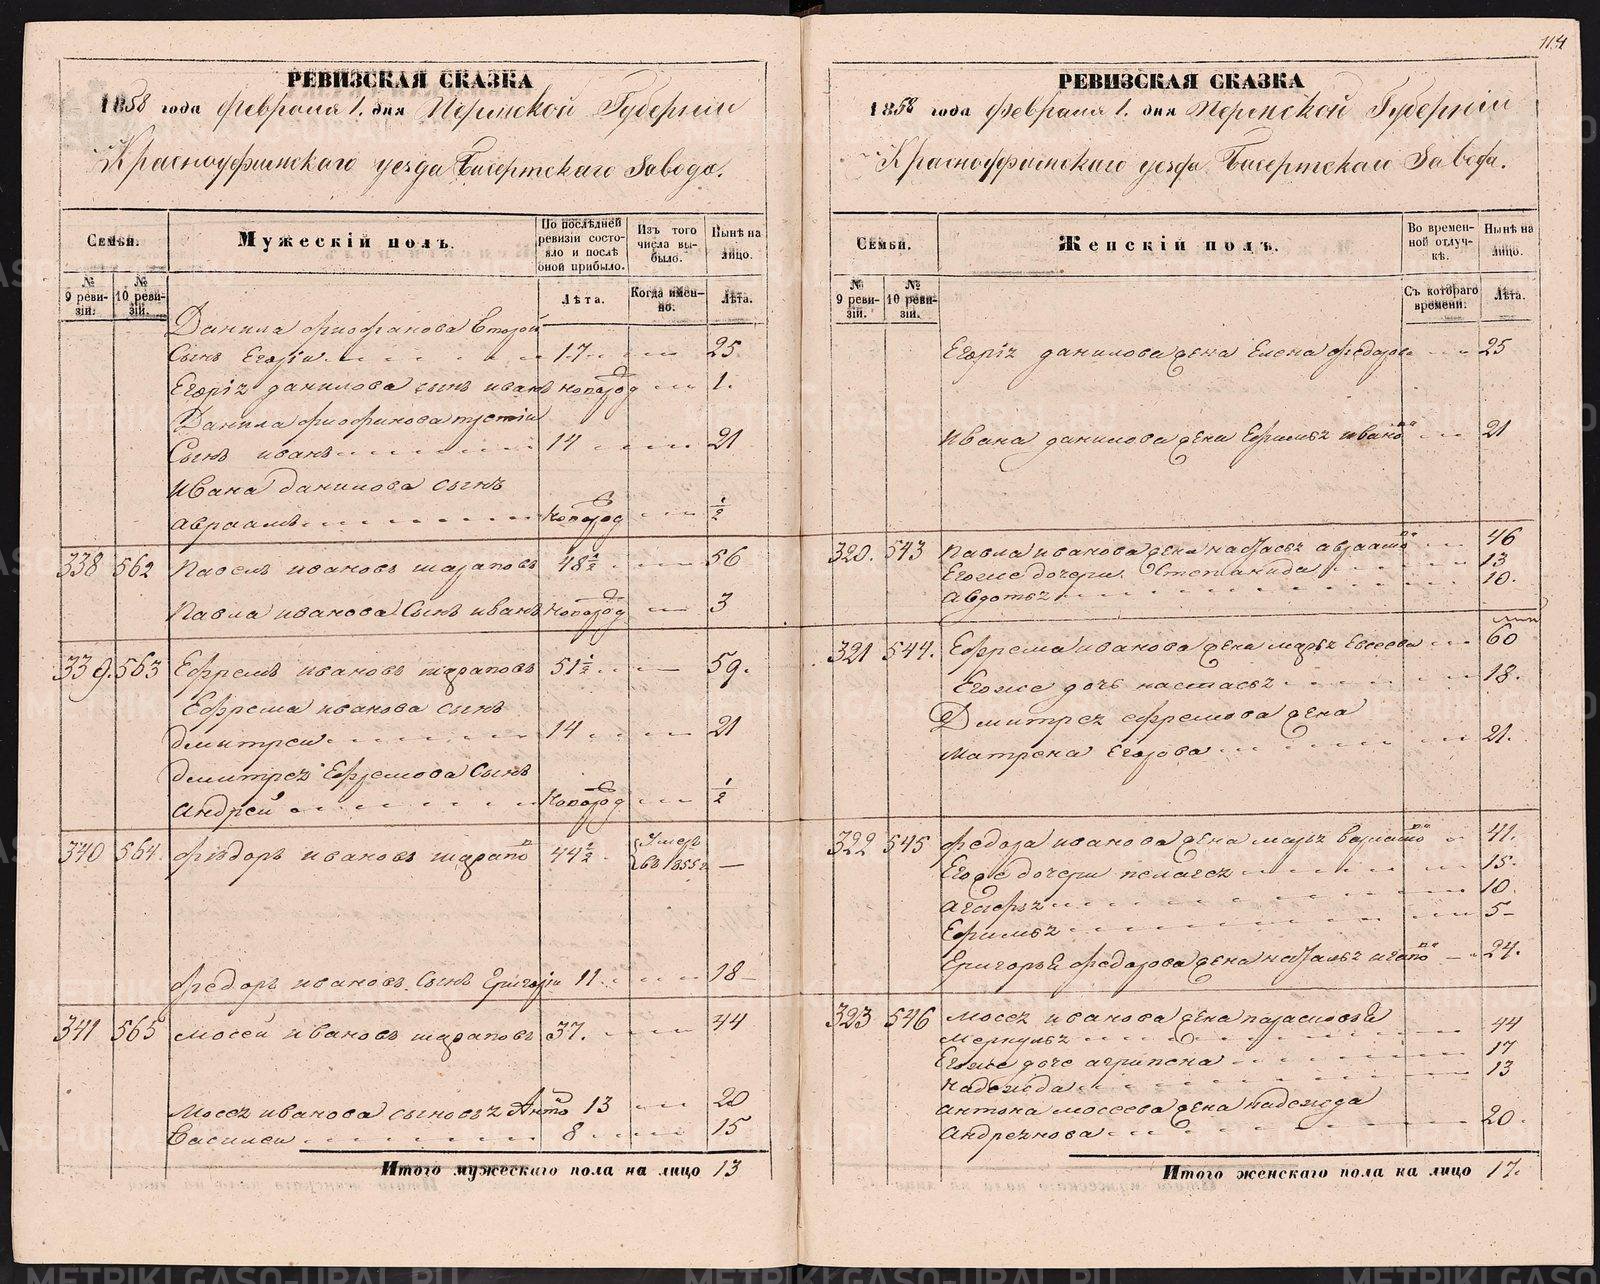 114
РЕВИЗСКАЯ СКАЗКА
1858 года февраля 1. дня Пермской Губернiи
Красноуфимскаго уезда Бисертскаго Завода.
Семьи.
Мужескiй полъ.
По послѣдней ревизiи состояло и послѣ оной прибыло.
Изъ того числа выбыло.
Нынѣ на лицо.
№ 9 ревизiи.
№ 10 ревизiи.
Лѣта.
Когда именно.
Лѣта.
Данила фиофанова второй
Сынъ Егорiи 17 25
Егорiя данилова сынъ иванъ новород 1.
Данила фиофанова третiи
Сынъ иванъ 14 21
Ивана данилова сынъ
авраамъ новород ½
338 562 Павелъ ивановъ шараповъ 48½ 56
Павла иванова Сынъ иванъ новород 3
339. 563 Ефремъ ивановъ шараповъ 51½ 59.
Ефрема иванова сынъ
дмитреи 14 21
дмитрея Ефремова Сынъ
андрей новород ½
340 564. федоръ ивановъ шарапо 44½ Умеръ въ 1855 г —
федоръ ивановъ Сынъ Григорiи 11. 18
341 565 мосей ивановъ шараповъ 37. 44
мосея иванова сыновья Анто 13 20
Василеи 8 15
Итого мужескаго пола на лицо 13
РЕВИЗСКАЯ СКАЗКА
1858 года февраля 1. дня Пермской Губернiи
Красноуфимскаго уезда Бисертскаго Завода.
Семьи.
Женскiй полъ.
Во временной отлучкѣ.
Нынѣ на лицо.
№ 9 ревизiи.
№ 10 ревизiи.
Съ котораго времени.
Лѣта.
Егорiя данилова жена Елена федорова 25
Ивана данилова жена Ефимья ивано 21
320. 543 Павла иванова жена настасья авраамо 46
Егоже дочери Степанида 13
авдотья 10.
321 544. Ефрема иванова жена марья Евсеева 60
Егоже дочь настасья 18.
Дмитрея ефремова жена
матрена Егорова 21.
322 545 федора иванова жена марья 41.
Егоже дочери пелагея 15.
агафья 10.
Ефимья 5
Григорья федорова жена наталья игнато 24.
323 546 мосея иванова жена парасковья
меркулья 44
Егоже доче агрипена 17
надежда 13
антона мосеева жена надежда
андреянова 20.
Итого женскаго пола на лицо 17.
METRIKI.GASO-URAL.RU